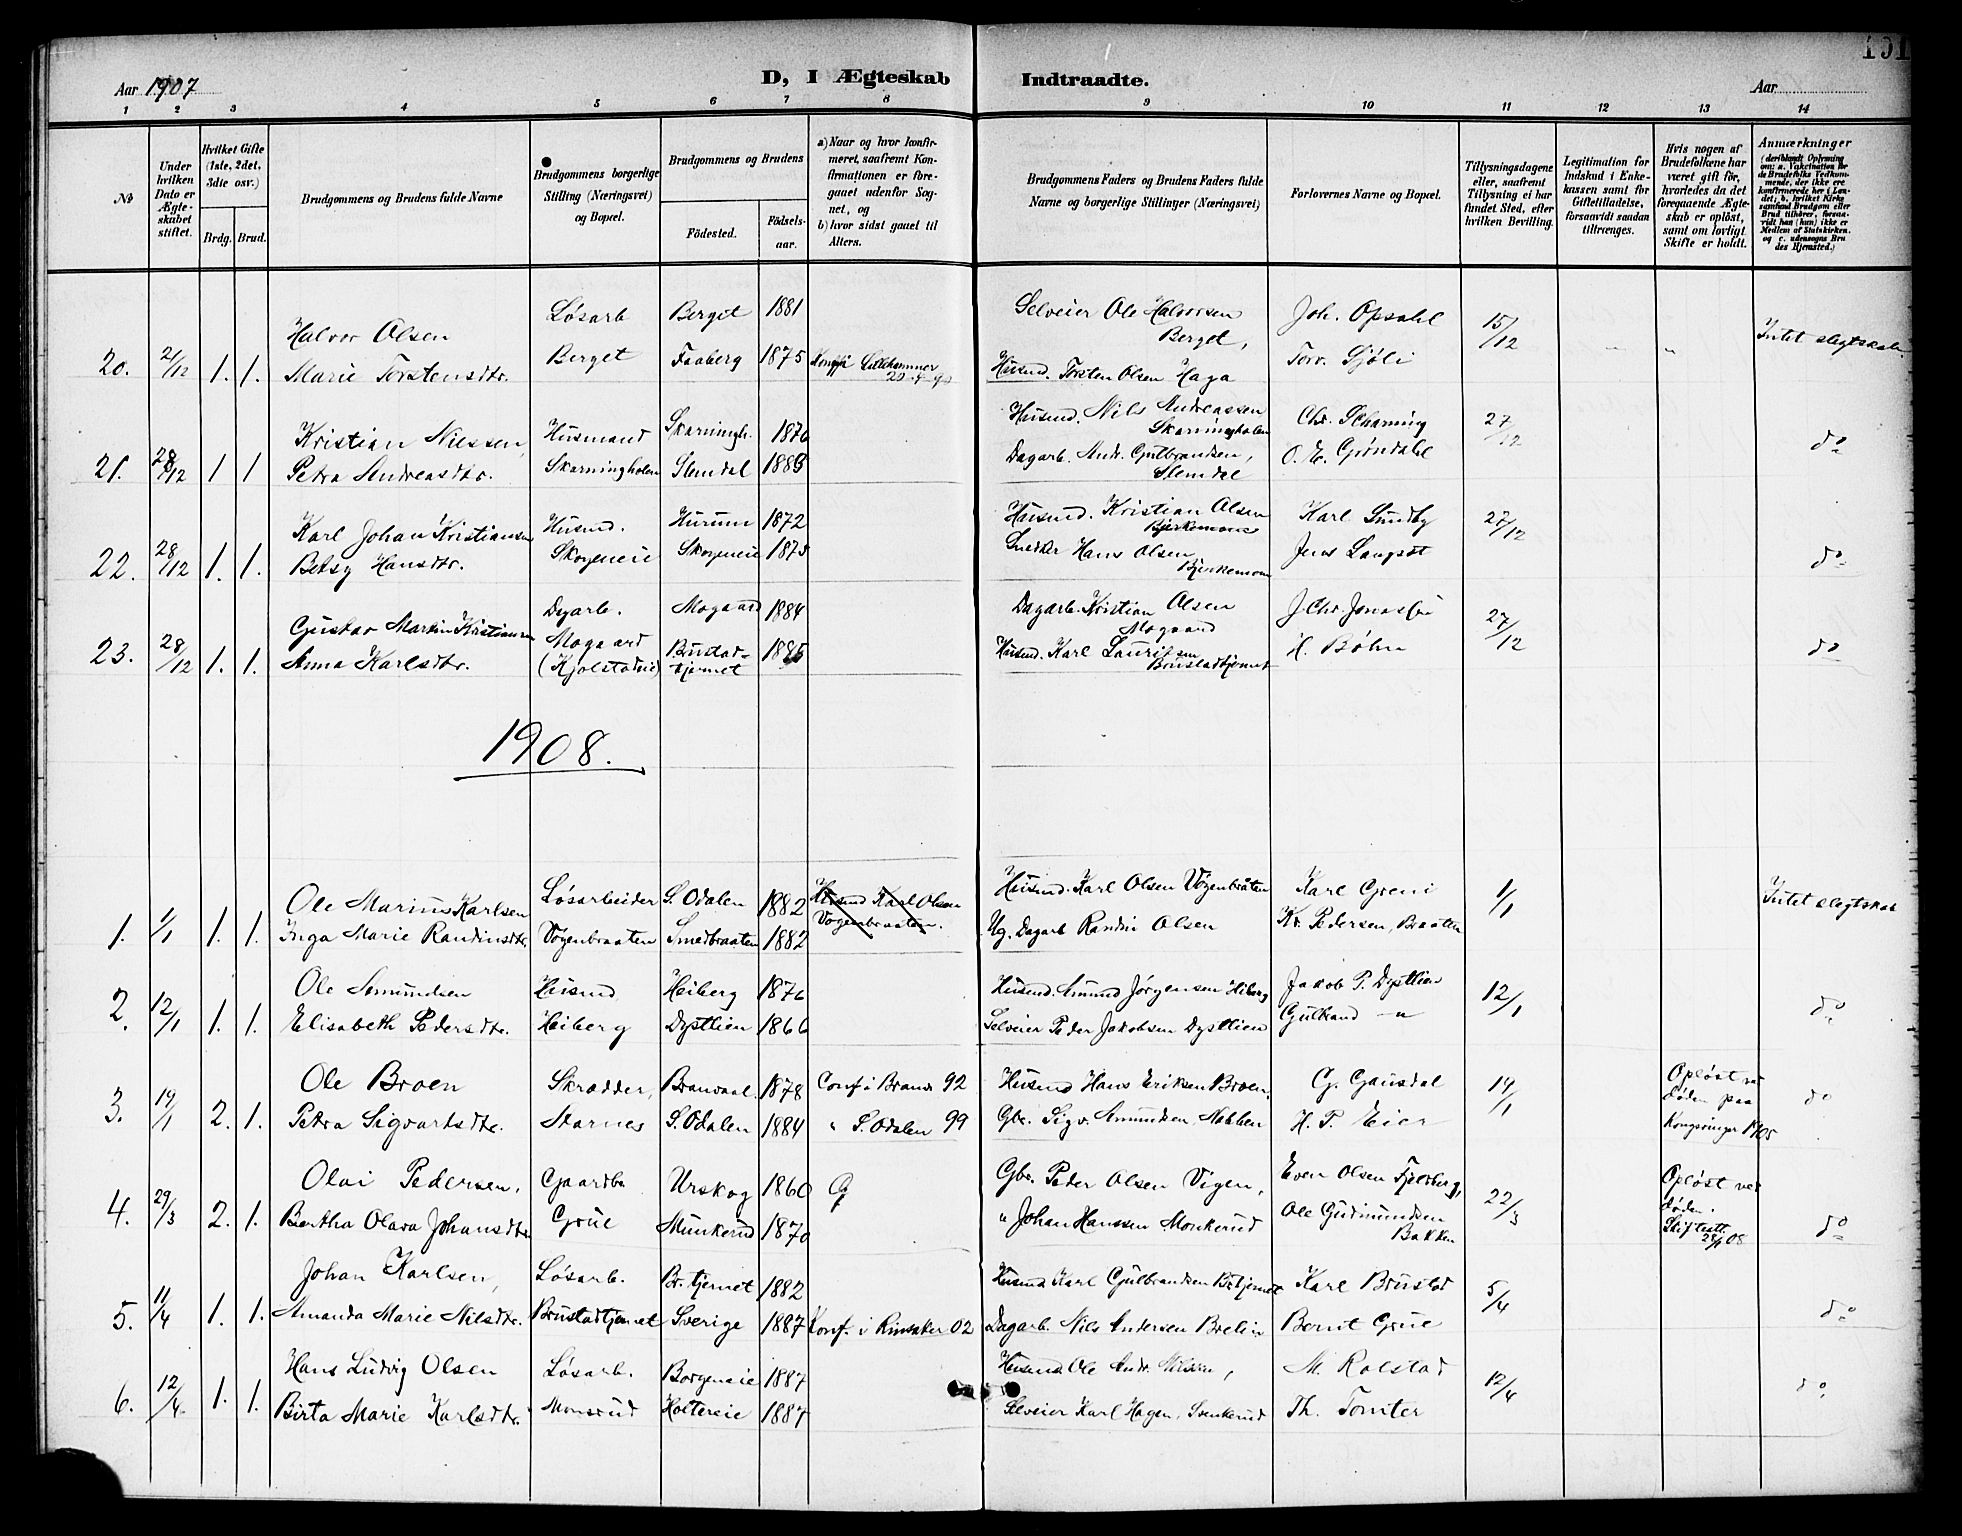 101
Aar 1907
D, I Ægteskab Indtraadte.
Aar
1 2 3 4 5 6 7 8 9 10 11 12 13 14
№
Under hvilken Dato er Ægteskabet stiftet.
Hvilket Gifte (1ste, 2det, 3die osv.)
Brdg. Brud.
Brudgommens og Brudens fulde Navne
Brudgommens borgerlige Stilling (Næringsvei) og Bopæl.
Brudgommens og Brudens
Fødested. Fødselsaar.
a) Naar og hvor konfirmeret, saafremt Konfirmationen er foregaaet udenfor Sognet, og
b) hvor sidst gaaet til Alters.
Brudgommens Faders og Brudens Faders fulde Navne og borgerlige Stillinger (Næringsvei)
Forlovernes Navne og Bopæl.
Tillysningsdagene eller, saafremt Tillysning ei har fundet Sted, efter hvilken Bevilling.
Legitimation for Indskud i Enkekassen samt for Giftetilladelse, forsaavidt saadan tiltrænges.
Hvis nogen af Brudefolkene har været gift før, hvorledes da det foregaaende Ægteskab er opløst, samt om lovligt Skifte er holdt.
Anmærkninger
(deriblandt Oplysning om: a. Vakcination for de Brudefolks Vedkommende, der ikke ere konfirmerede her i Landet; b. hvilket Kirkesamfund Brudgom eller Brud tilhører, forsaavidt han (hun) ikke er Medlem af Statskirken. og c. udensogns Brudes Hjemsted.)
Halvor Olsen Løsarb Berget 1881 Selveier Ole Halvorsen Berget, Joh. Opsahl 15/12 Intet slegtskab.
20. 21/12 1. 1. Marie Torstensdtr. Berget Faaberg 1875 Konf i Lillehammer Husmd. Torsten Olsen Haga Torv. Sjöli
Kristian Nilssen, Husmand Skarningh. 1876 Husmd. Nils Andreassen Skarningholen Chr. Scharning 27/12 do
21. 28/12 1 1 Petra Andreasdtr. Skarningholen Slemdal Dagarb. Andr. Gulbrandsen, Slemdal O. E. Gröndahl
Karl Johan Kristiansen Husmd. Hurum 1872 Husmd. Kristian Olsen Karl Sundby 27/12 do
22. 28/12 1. 1. Betsy Hansdtr. Skogeneie Skogeneie 1875 Snedker Hans Olsen Bjerkemoen Jens
Gustav Martin Kristiansen Dagarb. Mogaard 1884 Dagarb. Kristian Olsen Mogaard J. Chr. 27/12 do
23. 28/12 1. 1. Anna Karlsdtr. Mogaard (Kjolstadeie) Bustadtjernet Husmd. Karl Lauritsen H. Böhn
1908.
Ole Marius Karlsen Løsarbeider S. Odalen 1882 Husmd Karl Olsen Vögenbraaten. Husmd. Karl Olsen Vögenbråten Karl Greni 1/1 Intet slegtskab
1. 1/1 1. 1. Inga Marie Randinsdtr. Vögenbraaten Smedbraaten 1882 Ug. Dagarb Randii Olsen Kr. Pedersen, Braaten
Ole Amundsen Husmd. Heiberg 1876 Husmd. Amund Jörgensen Heiberg Jacob P. Dystlien 12/1 do
2. 12/1 1. 1. Elisabeth Pedersdtr. Heiberg Dystlien 1866 Selveier Peder Jakobsen Dystlien Gulbrand — " —
Ole Broen Skrædder, Branvaal. 1878 Conf i Branv 92 Husmd Hans Eriksen Broen. G. Gausdal 19/1 Opløst ved døden paa Kongsvinger 1905 do
3. 19/1 2. 1. Petra Sigvartsdtr. Starnes S. Odalen 1884 " S. Odalen 99 Gbr. Sigv. Amundsen, Nabben H. P. Eier
Olai Pedersen, Gaardbr. Urskog 1860 G Gbr. Peder Olsen Vigen, Even Olsen Fjeldberg, 22/3 Opløst ved døden. Skifteatt. 28/1 08 do
4. 29/3 2. 1. Bertha Olava Johansdtr Grue Munkerud 1870 " Johan Hanssen Monkerud Ole Gudmundsen Bakken
Johan Karlsen, Løsarb. Br. tjernet 1882 Husmd Karl Gulbrandsen Br tjernet Karl Brustad 5/4 do
5. 11/4 1. 1. Amanda Marie Nilsdtr. Brustadtjernet Sverige 1887 Konf. i Rinsaker 02 Dagarb. Nils Andersen Brelin Bernt Grue
Hans Ludvig Olsen Løsarb. Borgeneie 1887 Husmd Ole Andr. Nilssen, M. Rolstad 12/4 do
6. 12/4 1. 1. Birta Marie Karlsdtr. Monsrud Holtereie 1887 Selveier Karl Hagen, Svenkerud Th. Tomter